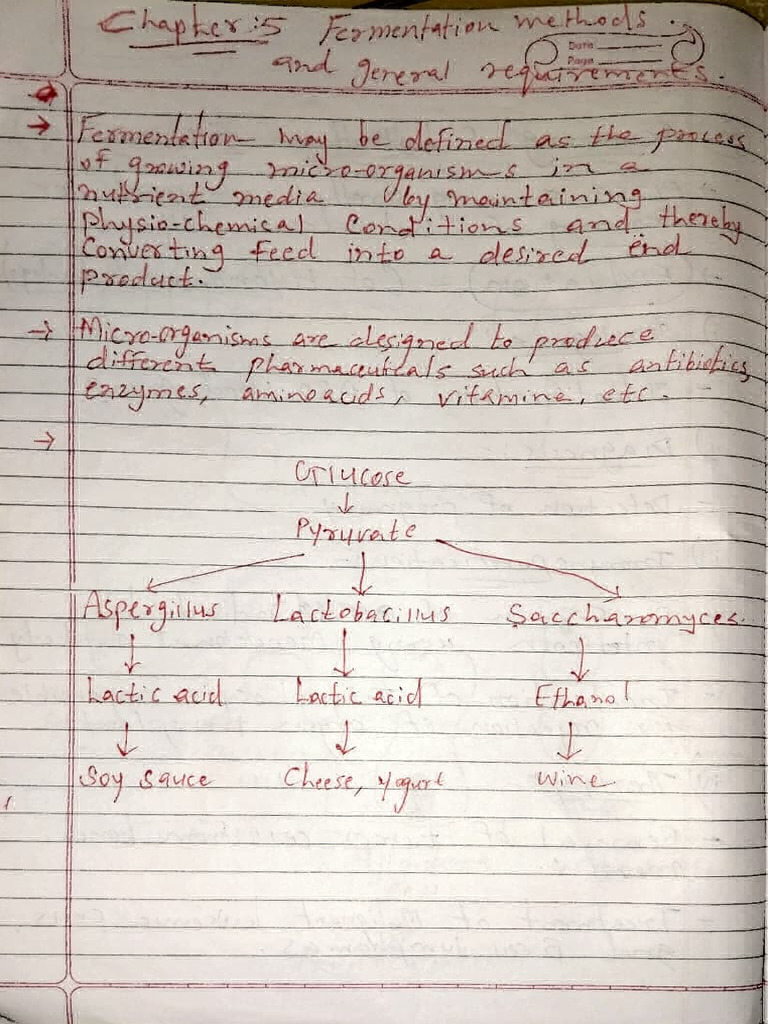 Chapter:5 Fermentation methods
Date
Page
and general requirements.
→ Fermentation may be defined as the process
of growing micro-organisms in a
nutrient media by maintaining
physio-chemical conditions and thereby
converting feed into a desired end
product.
→ Micro-organisms are designed to produce
different pharmaceuticals such as antibiotics,
enzymes, aminoacids, vitamine, etc.
→
Glucose
↓
Pyruvate
Aspergillus Lactobacillus Saccharomyces.
↓ ↓ ↓
Lactic acid Lactic acid Ethanol
↓ ↓ ↓
Soy sauce Cheese, Yogurt Wine